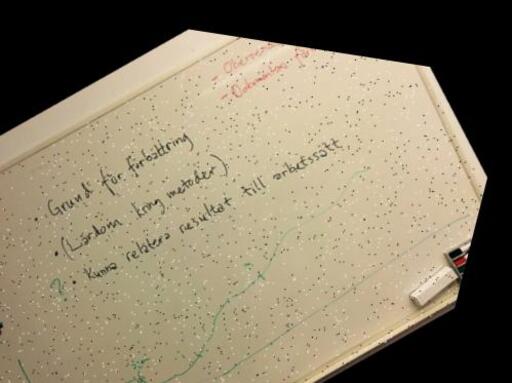 - Dokumentera
• Grund för förbättring
• (Lärdom kring metoder)
? • Kunna relatera resultat till arbetssätt